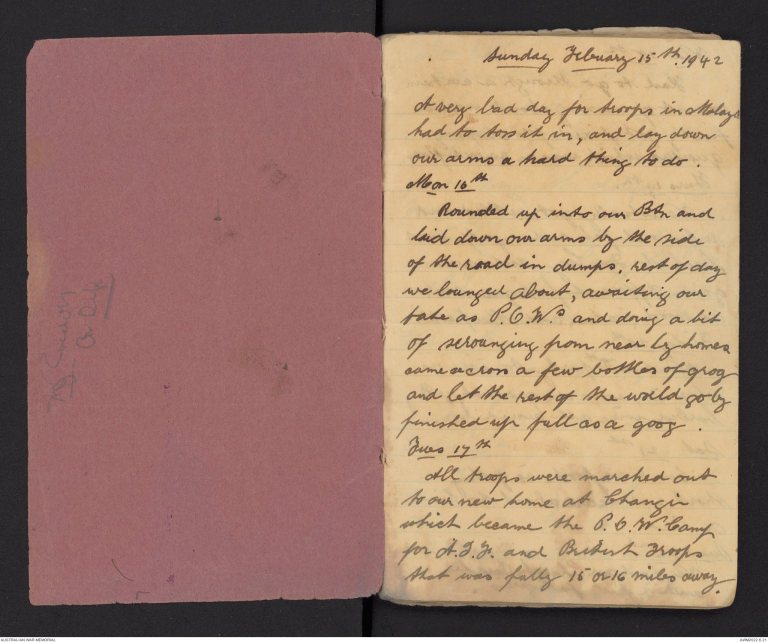 Sunday February 15th. 1942
A very bad day for troops in Malaya
had to toss it in, and lay down
our arms a hard thing to do.
Mon 16th
Rounded up into our Btn and
laid down our arms by the side
of the road in dumps, rest of day
we lounged about, awaiting our
fate as P.O.W.s and doing a bit
of scrounging from near by homes
came across a few bottles of grog
and let the rest of the world go by
finished up full as a goog.
Tues 17th
All troops were marched out
to our new home at Changi
which became the P.O.W. Camp
for A.I.F. and British Troops
that was fully 15 or 16 miles away.
AUSTRALIAN WAR MEMORIAL